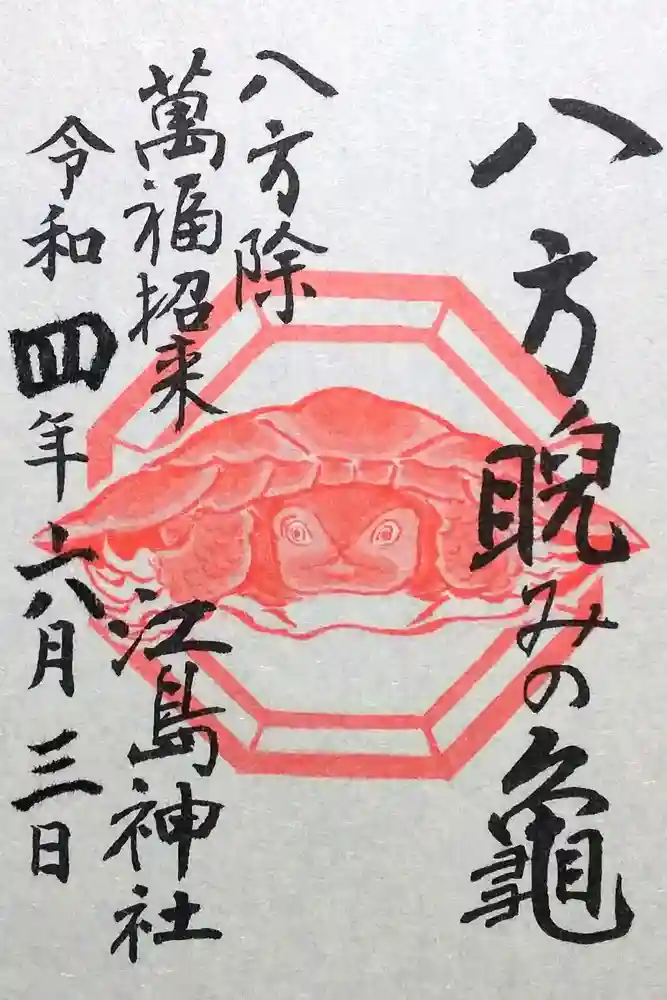 八方睨みの龜
八方除
萬福招来
江島神社
令和四年六月三日